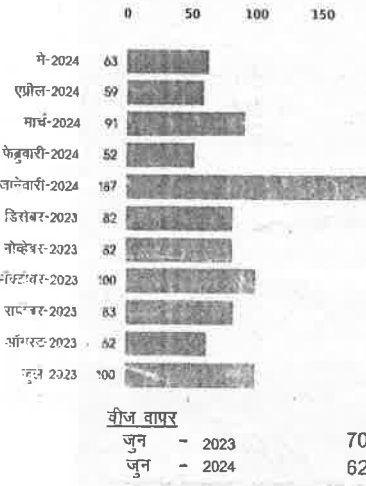 0 50 100 150
मे-2024 63
एप्रील-2024 59
मार्च-2024 91
फेब्रुवारी-2024 52
जानेवारी-2024 187
डिसेंबर-2023 82
नोव्हेंबर-2023 82
ऑक्टोबर-2023 100
सप्टेंबर-2023 83
ऑगस्ट-2023 62
जुलै 2023 100
वीज वापर
जुन - 2023 70
जुन - 2024 62